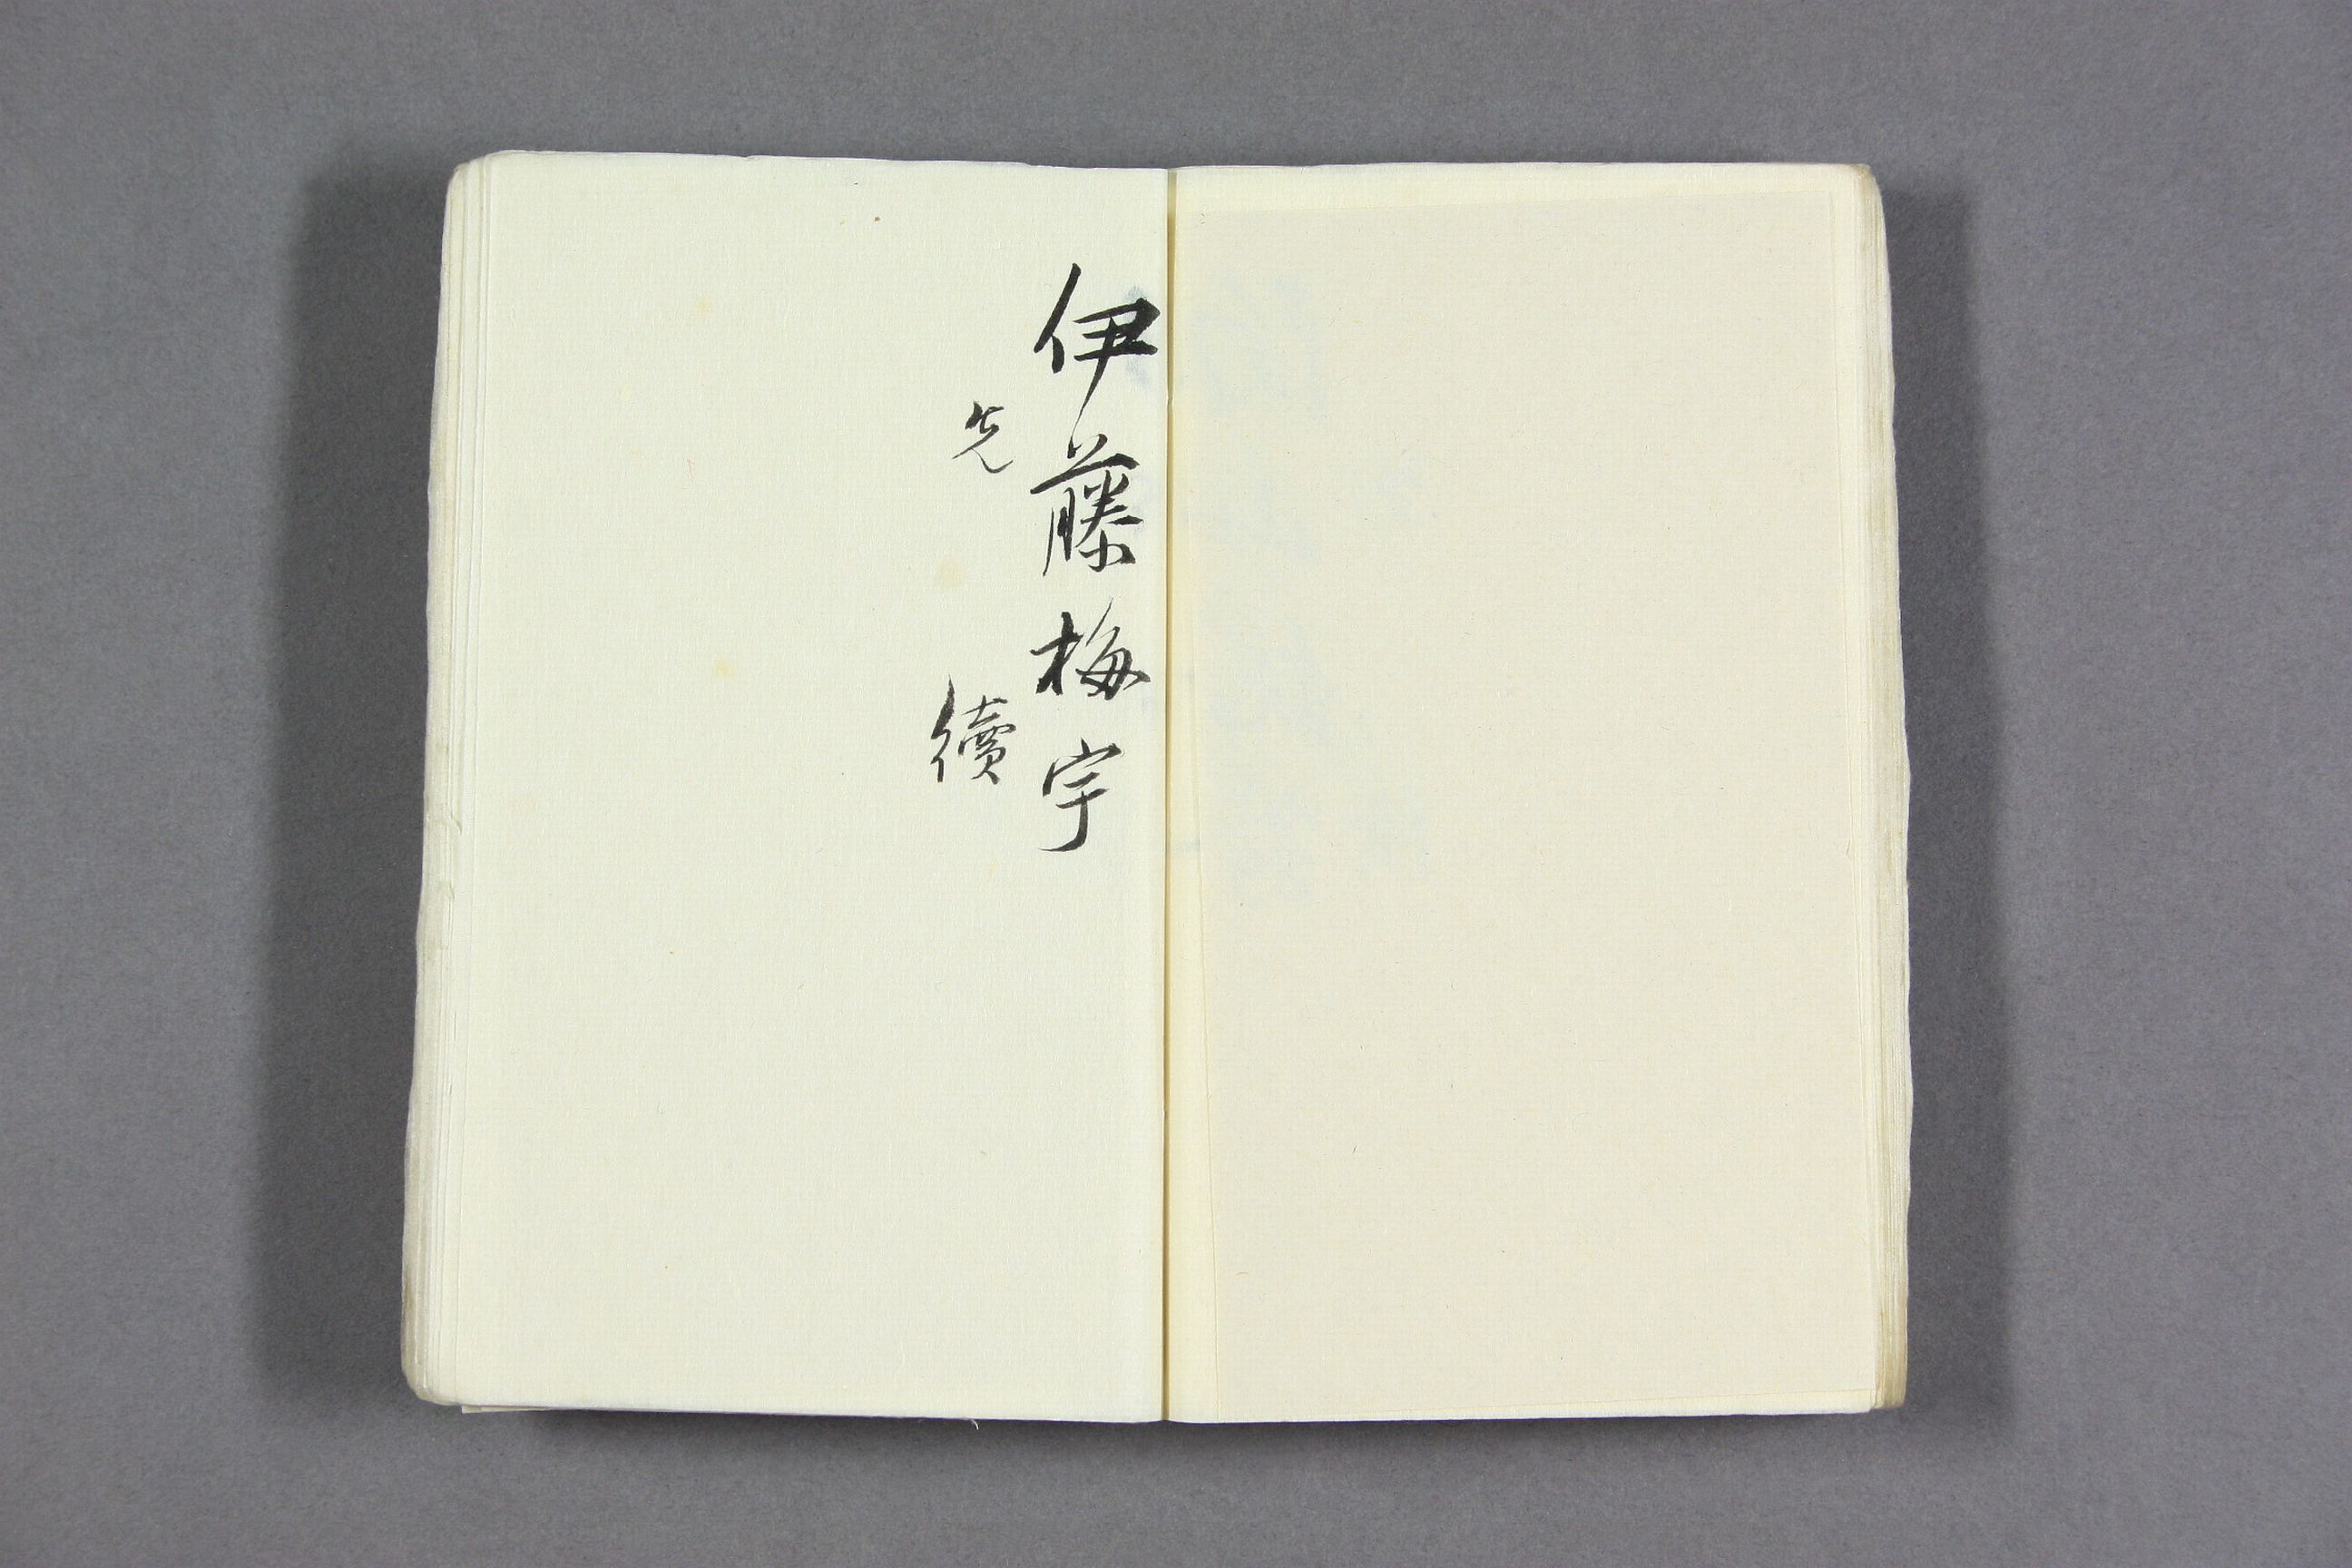 伊藤梅宇
先 續